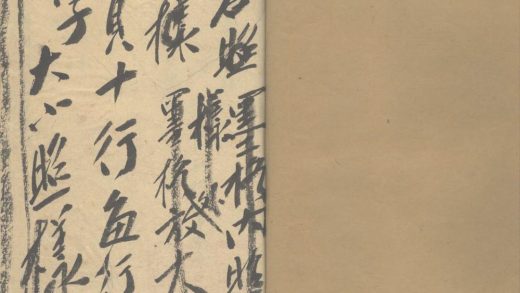 照墨格內照
樣
樣
墨格放大
頁十行每行
字大小照樣